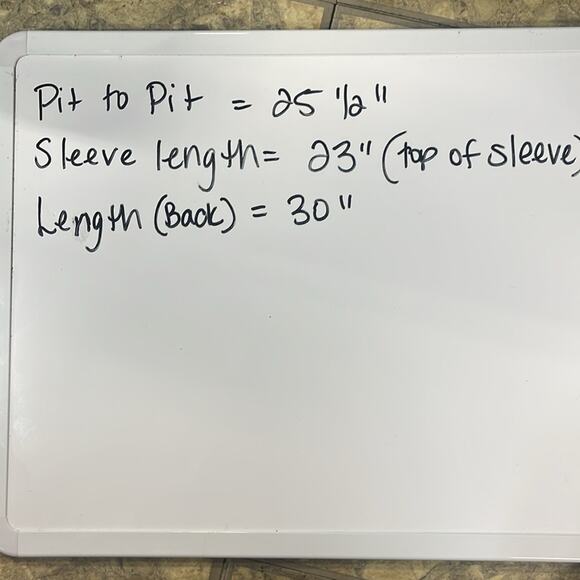 Pit to Pit = 25 1/2"
Sleeve length = 23" (top of sleeve)
Length (Back) = 30"